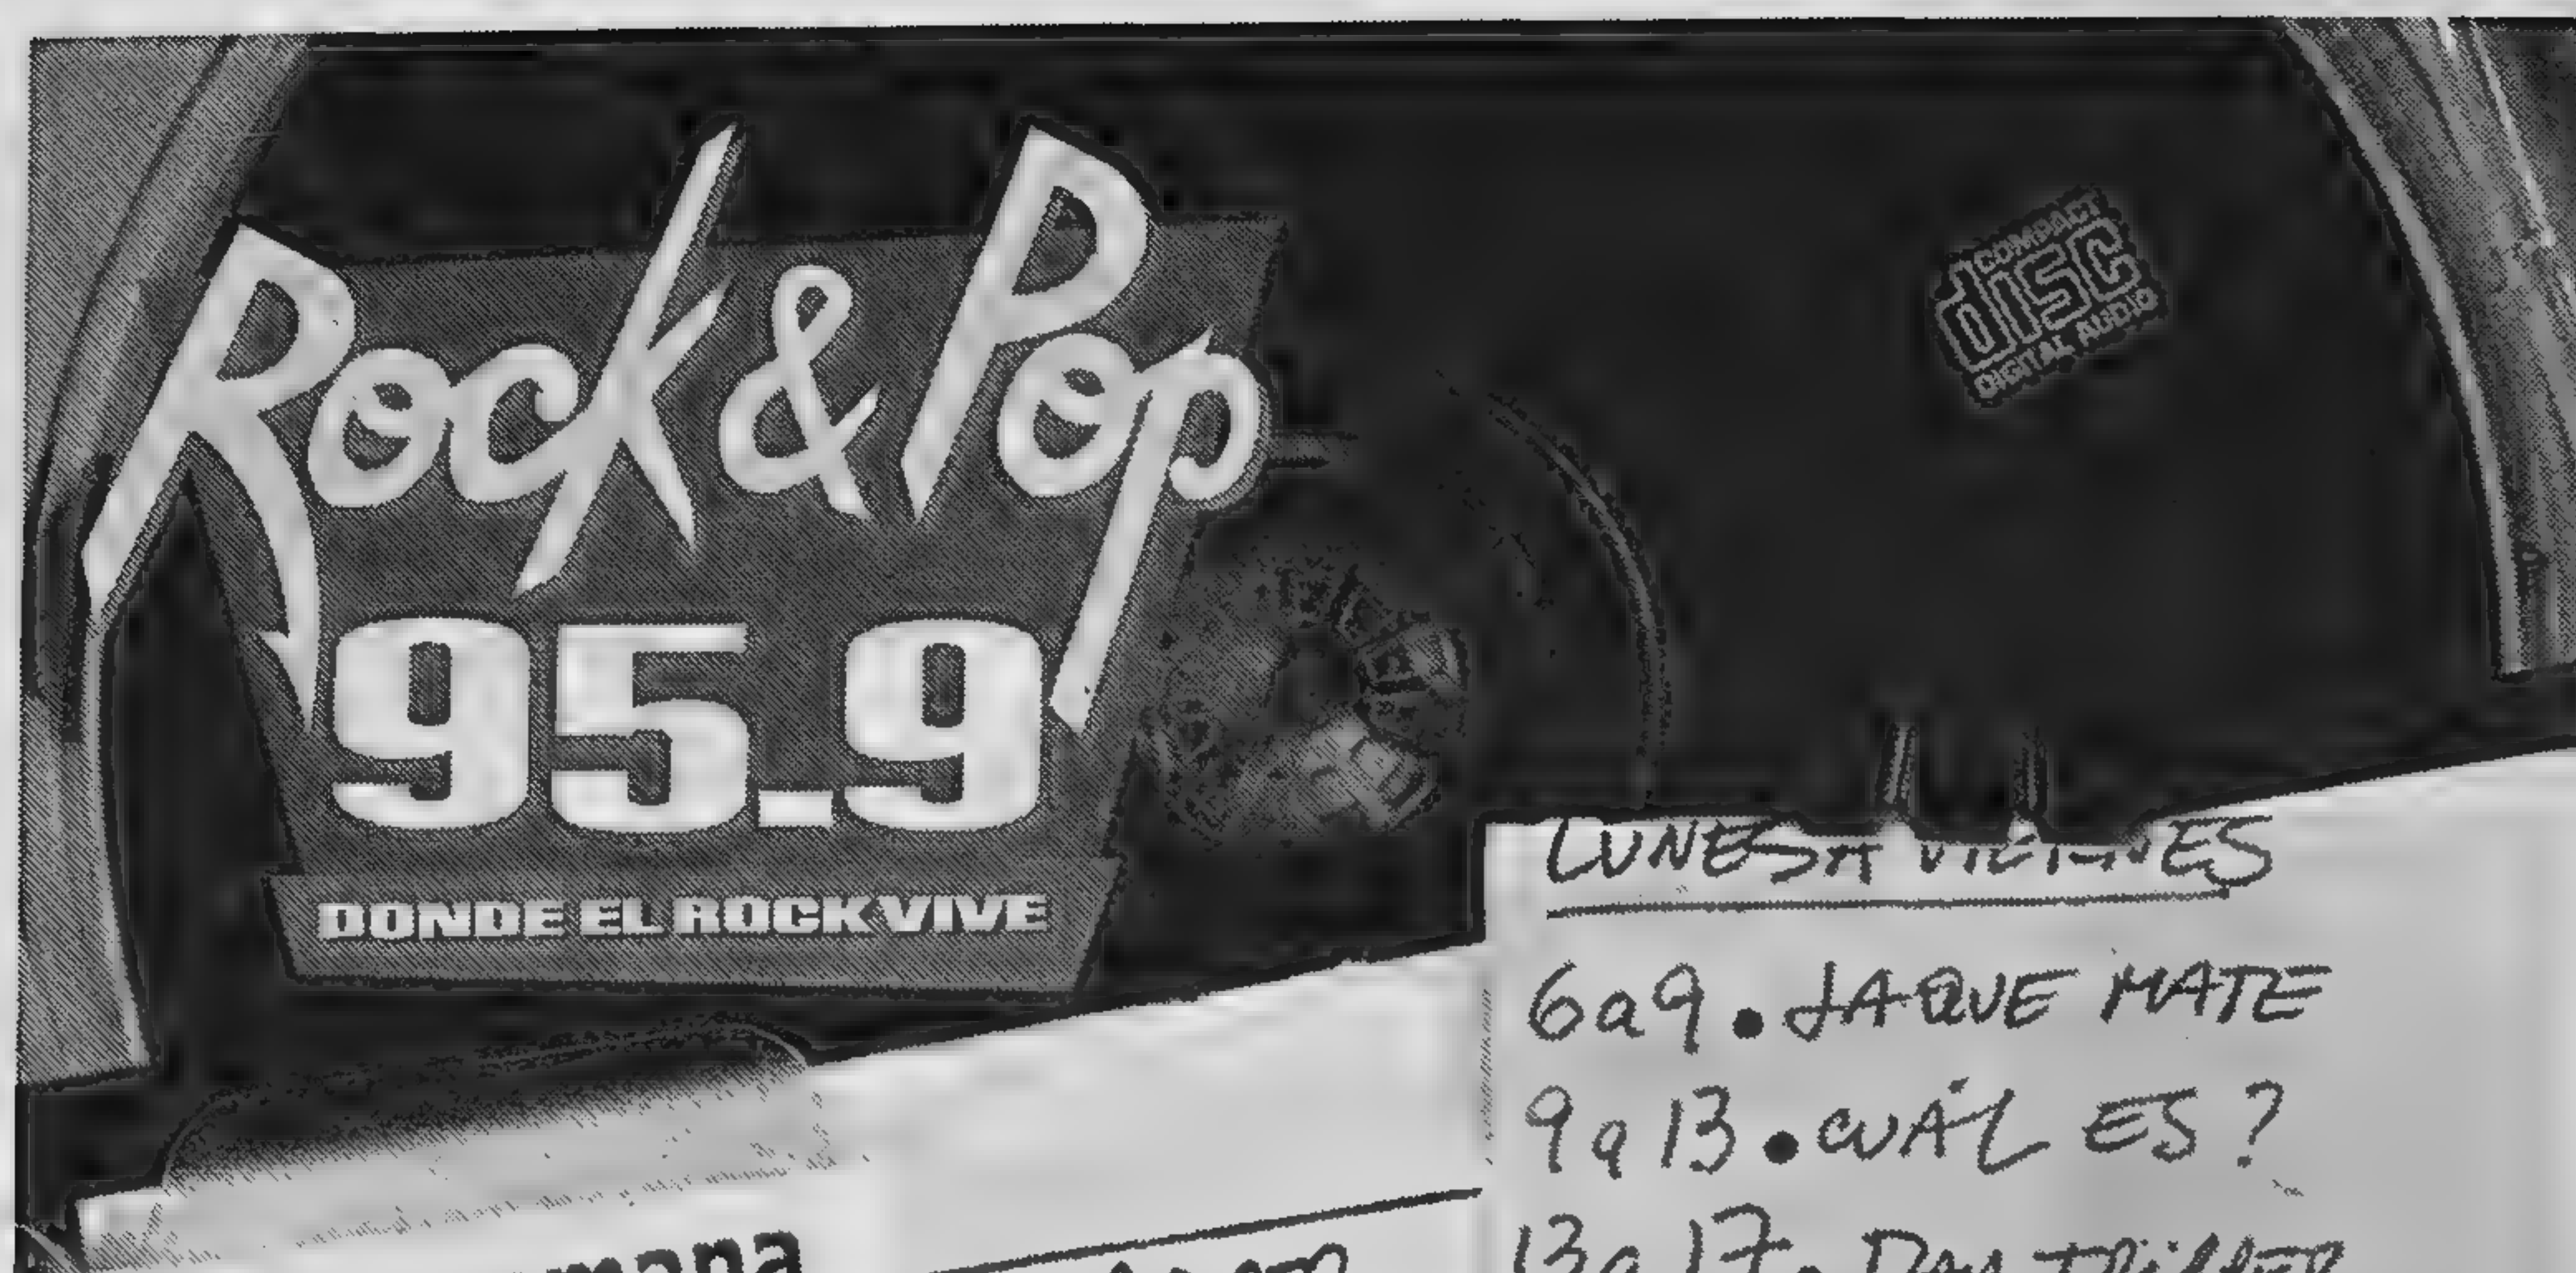 Rock & Pop
95.9
DONDE EL ROCK VIVE
COMPACT
disc
DIGITAL AUDIO
LUNES A VIERNES
6 a 9 . JAQUE MATE
9 a 13 . CUÁL ES ?
13 a 17 . DAY TRIPPER